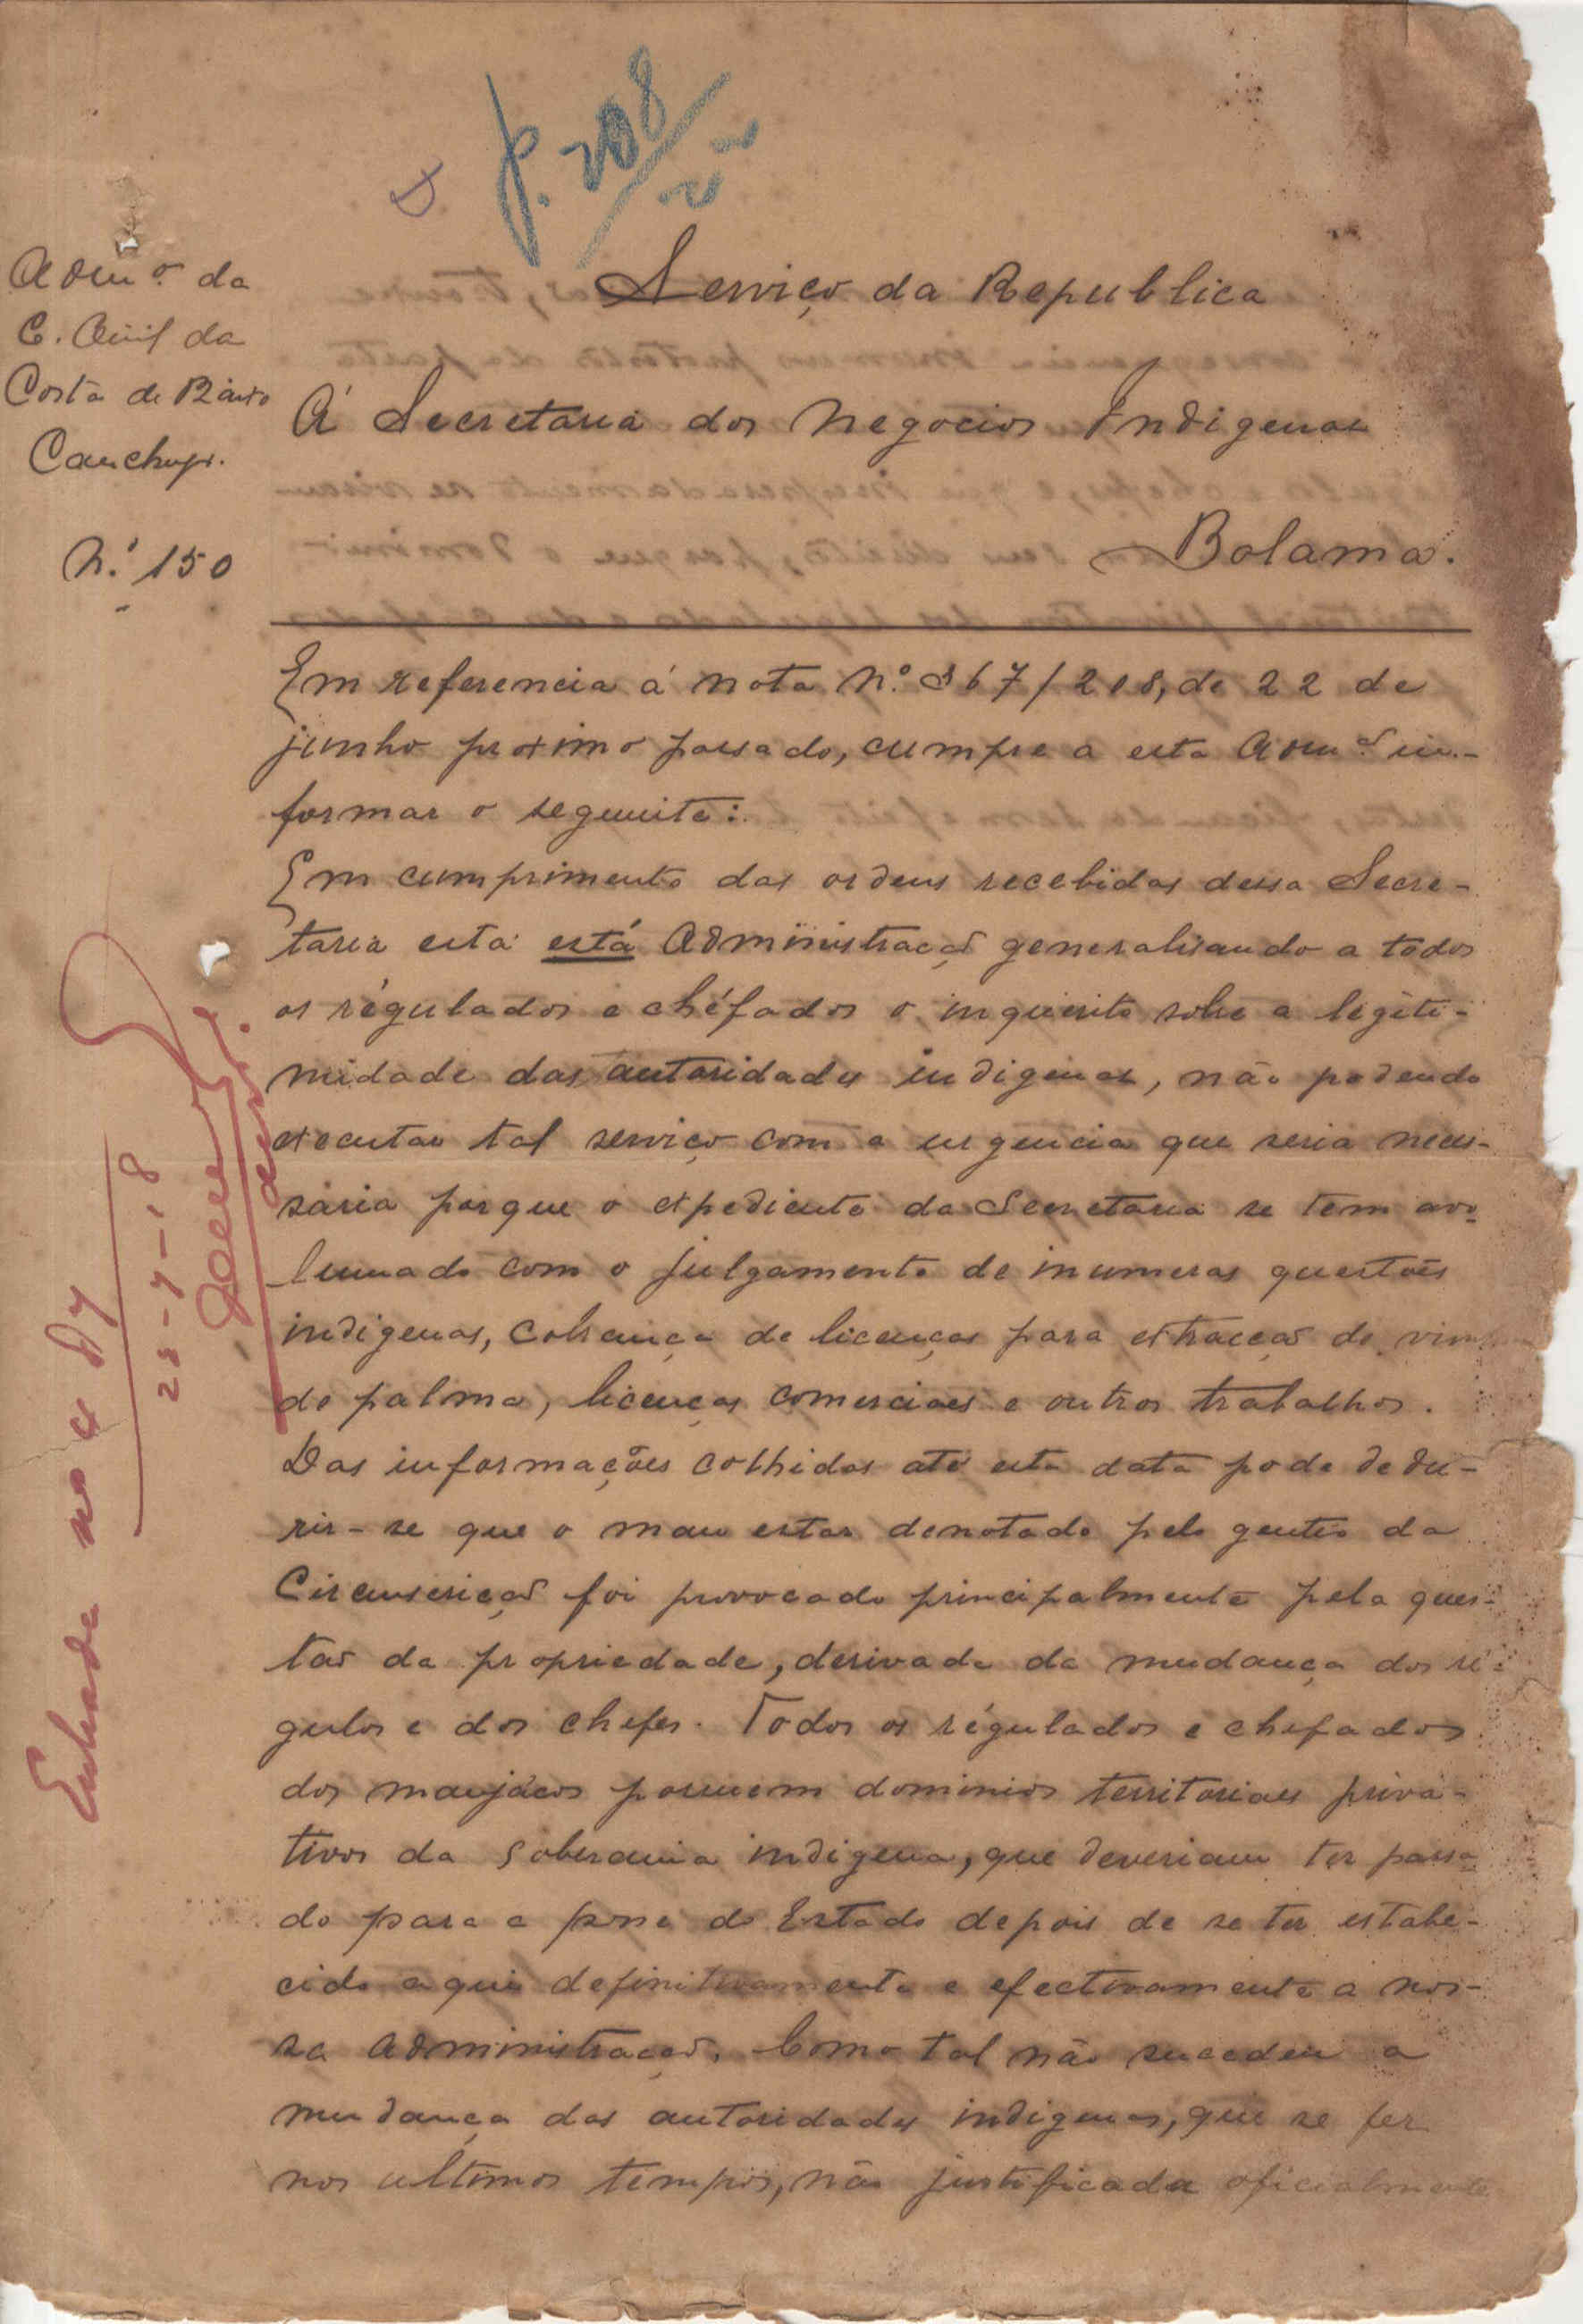 P. 208
Adm.º da
C. Civil da
Costa de Baixo
Canchungo.
N.º 150
Serviço da Republica
Á Secretaria dos Negocios Indigenas
Bolama.
Em referencia á nota N.º 367/208, de 22 de
junho proximo passado, cumpre a esta Adm.ᵃᵒ in-
formar o seguinte:
Em cumprimento das ordens recebidas dessa Secre-
taria esta está Administração generalisando a todos
os régulados e chéfados o inquerito sobre a legiti-
midade das autoridades indigenas, não podendo
executar tal serviço com a urgencia que seria neces-
sária porque o expediente da Secretaria se tem avo-
lumado com o julgamento de inumeras questões
indigenas, cobrança de licenças para extracção de vinho
de palma, licenças comerciaes e outros trabalhos.
Das informações colhidas até esta data pode dedu-
zir-se que o mau estar denotado pelo gentio da
Circunscrição foi provocado principalmente pela ques-
tão da propriedade, derivada da mudança dos ré-
gulos e dos chefes. Todos os régulados e chefados
dos manjácos possuem dominios territoriaes priva-
tivos da soberania indigena, que deveriam ter passa
do para a posse do Estado depois de se ter estabe-
cido aqui definitivamente e efectivamente a nos-
sa administração. Como tal não sucedeu a
mudança das autoridades indigenas, que se fez
nos ultimos tempos, não justificada oficialmente
Entrada no a 27
28-7-18